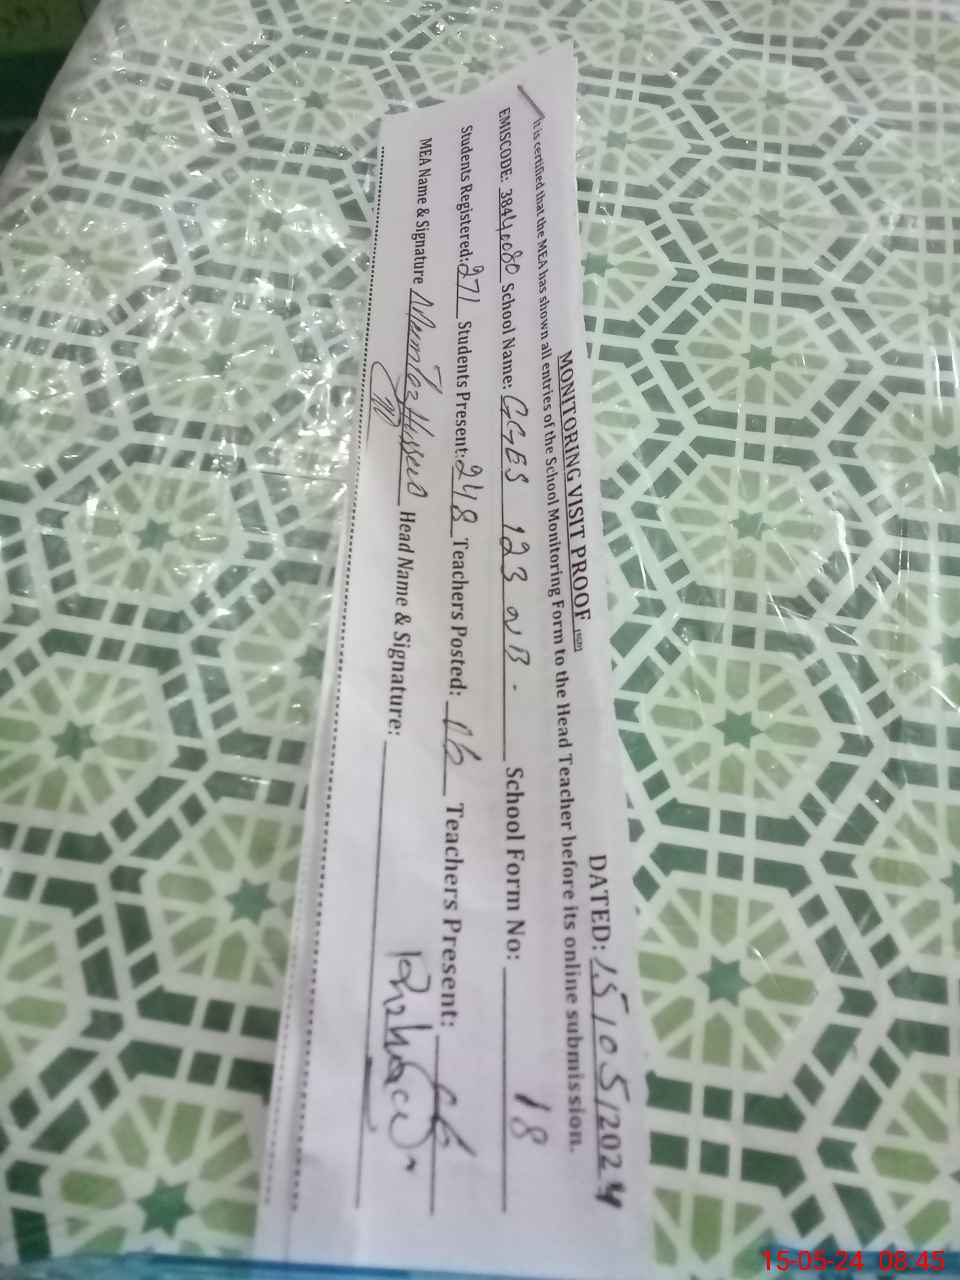 MONITORING VISIT PROOF DATED: 15/05/2024
It is certified that the MEA has shown all entries of the School Monitoring Form to the Head Teacher before its online submission.
EMISCODE: 38440080 School Name: GGES 123 NB. School Form No: 18
Students Registered: 271 Students Present: 248 Teachers Posted: 16 Teachers Present: 16
MEA Name & Signature Head Name & Signature:
15-05-24 08:45